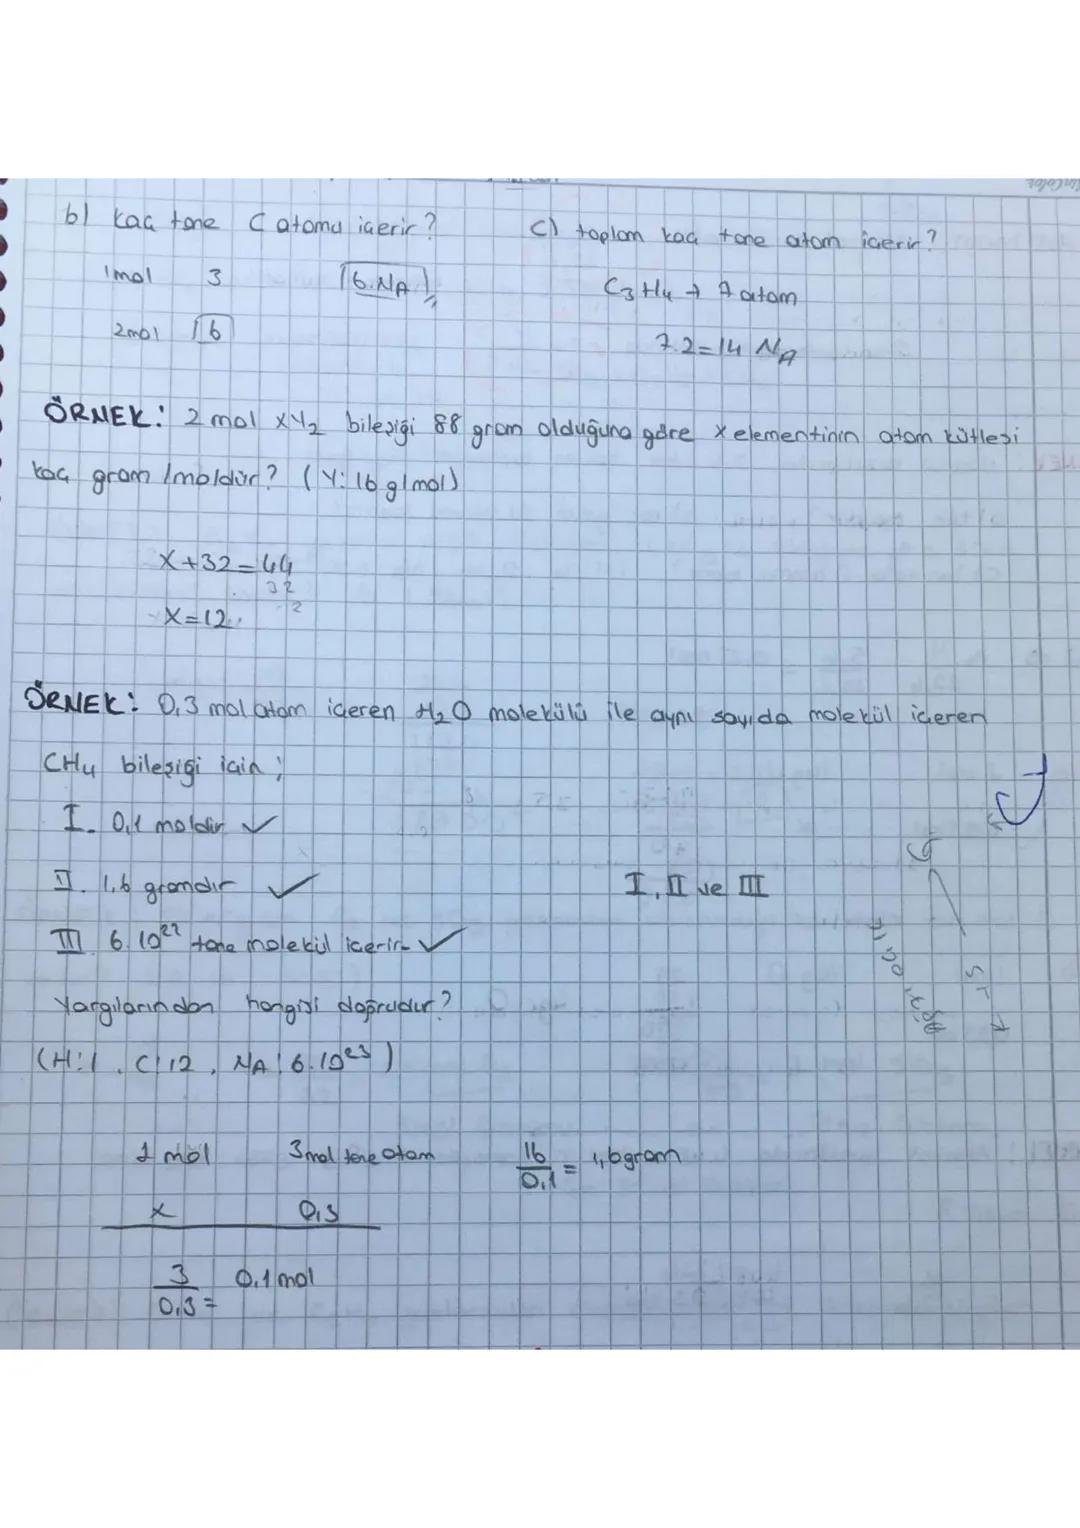 b) kaç tane C atomu içerir?
c) toplam kaç tane atom içerir?
1mol 3 6.NA
2mol 6
C3H4 → 7 atom
7.2=14 NA
ÖRNEK: 2 mol XY2 bileşiği 88 gram olduğuna göre X elementinin atom kütlesi
kaç gram/moldür? (Y: 16 g/mol)
X+32=44
32
X=12
ÖRNEK: 0,3 mol atom içeren H2O molekülü ile aynı sayıda molekül içeren
CH4 bileşiği için;
I. 0,1 moldir ✓
II. 1,6 gramdır ✓
I, II ve III
III. 6.10²² tane molekül içerir ✓
Yargılarından hangisi doğrudur?
(H:1, C:12, NA: 6.10²³)
1 mol 3mol tane atom
16/0,1 = 1,6gram
x 0,3
3/0,3 = 0,1 mol